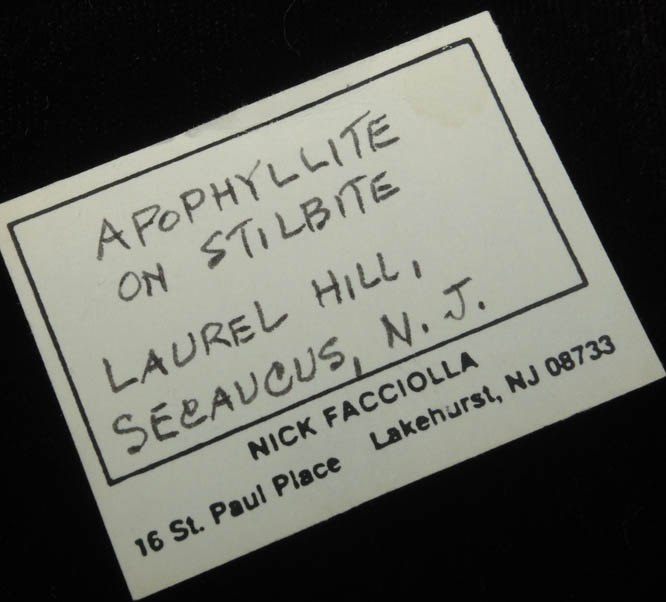 APOPHYLLITE
ON STILBITE
LAUREL HILL,
SECAUCUS, N.J.
NICK FACCIOLLA
16 St. Paul Place Lakehurst, NJ 08733